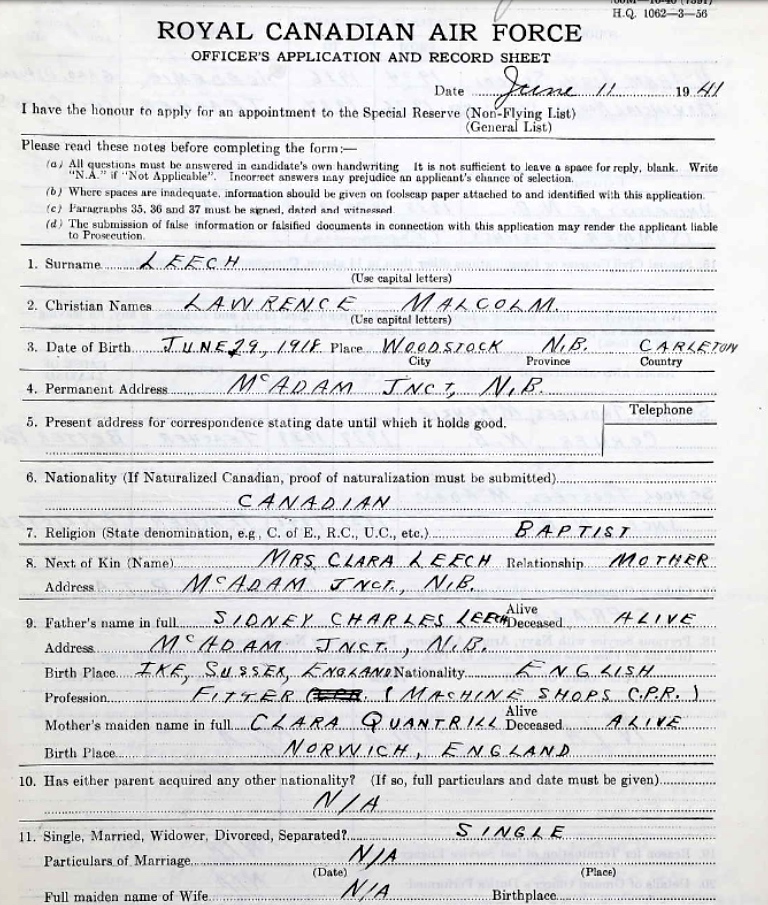 H.Q. 1062—3—56
ROYAL CANADIAN AIR FORCE
OFFICER'S APPLICATION AND RECORD SHEET
Date June 11 1941
I have the honour to apply for an appointment to the Special Reserve (Non-Flying List)
(General List)
Please read these notes before completing the form:—
(a) All questions must be answered in candidate's own handwriting It is not sufficient to leave a space for reply, blank. Write
"N.A." if "Not Applicable". Incorrect answers may prejudice an applicant's chance of selection.
(b) Where spaces are inadequate, information should be given on foolscap paper attached to and identified with this application.
(c) Paragraphs 35, 36 and 37 must be signed, dated and witnessed.
(d) The submission of false information or falsified documents in connection with this application may render the applicant liable
to Prosecution.
1. Surname LEECH
(Use capital letters)
2. Christian Names LAWRENCE MALCOLM.
(Use capital letters)
3. Date of Birth JUNE 29, 1918 Place WOODSTOCK N.B. CARLETON
City Province Country
4. Permanent Address McADAM JNCT, N.B.
Telephone
5. Present address for correspondence stating date until which it holds good.
6. Nationality (If Naturalized Canadian, proof of naturalization must be submitted)
CANADIAN
7. Religion (State denomination, e.g., C. of E., R.C., U.C., etc.) BAPTIST
8. Next of Kin (Name) MRS. CLARA LEECH Relationship MOTHER
Address McADAM JNCT., N.B.
9. Father's name in full SIDNEY CHARLES LEECH Alive Deceased ALIVE
Address McADAM JNCT., N.B.
Birth Place IKE, SUSSEX, ENGLAND Nationality ENGLISH
Profession FITTER (MACHINE SHOPS C.P.R.)
Mother's maiden name in full CLARA QUANTRILL Alive Deceased ALIVE
Birth Place NORWICH, ENGLAND
10. Has either parent acquired any other nationality? (If so, full particulars and date must be given)
N/A
11. Single, Married, Widower, Divorced, Separated? SINGLE
Particulars of Marriage N/A
(Date) (Place)
Full maiden name of Wife N/A Birthplace